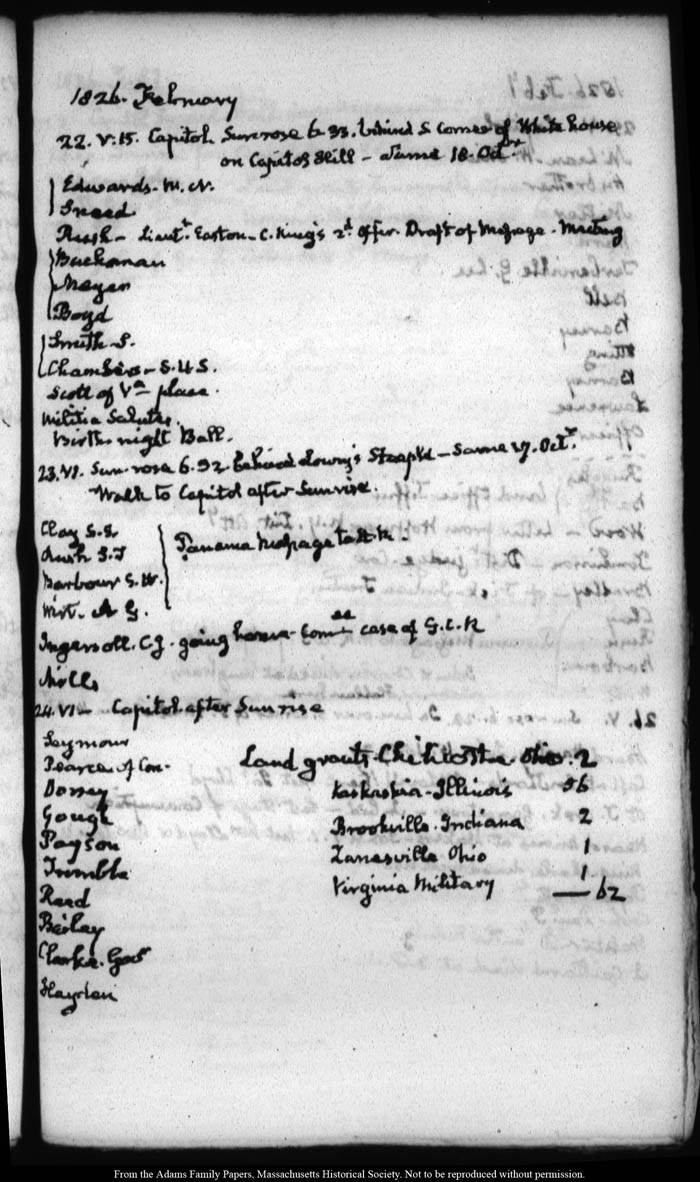 1826. February
22. V. 15. Capitol. Sun rose 6.33. behind S corner of White house
on Capitol Hill – Same 18. Octbr
Edwards. M. N.
Sneed
Rush – Lieutt. Easton – C. King's 2d. offer. Draft of Message. Meeting
Buchanan
Boyd
Smith S.
Chambers – S.U.S.
Scott of Va place.
Militia Salutes.
Birth night Ball.
23. VI. Sun rose 6.32 behind Lowry's – Same 27. Octr.
Walk to Capitol after Sunrise.
Clay S.S.
Rush S.T
Barbour S.W.
Wirt. A G.
Panama Message to H.R.
Ingersoll. C.J. going home – case of G.C.R
Mills
24. VI – Capitol after Sunrise
Seymour
Pearce of Con.
Dorsey
Gough
Payson
Trimble
Reed
Bailey
Clarke. Govr
Hayden
Land grants. Chillicothe. Ohio. 2
Kaskaskia – Illinois 56
Brookville. Indiana 2
Zanesville Ohio 1
Virginia Military 1
— 62
From the Adams Family Papers, Massachusetts Historical Society. Not to be reproduced without permission.